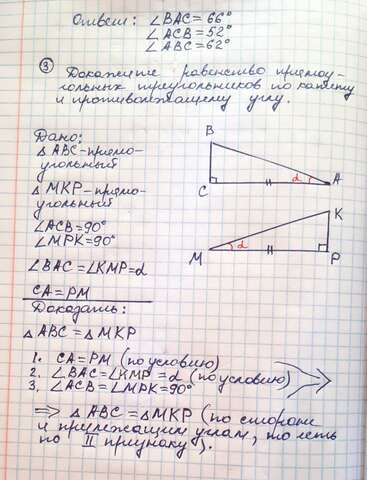 Ответ: ∠BAC = 66°
∠ACB = 52°
∠ABC = 62°
③ Докажите равенство прямоу-
гольных треугольников по катету
и противолежащему углу.
Дано:
△ABC - прямо-
угольный
△MKP - прямо-
угольный
∠ACB = 90°
∠MPK = 90°
∠BAC = ∠KMP = α
CA = PM
B
C
α
A
K
M
α
P
Доказать:
△ABC = △MKP
1. CA = PM (по условию)
2. ∠BAC = ∠KMP = α (по условию)
3. ∠ACB = ∠MPK = 90°
⇒ △ABC = △MKP (по стороне
и прилежащим углам, то есть
по II признаку).